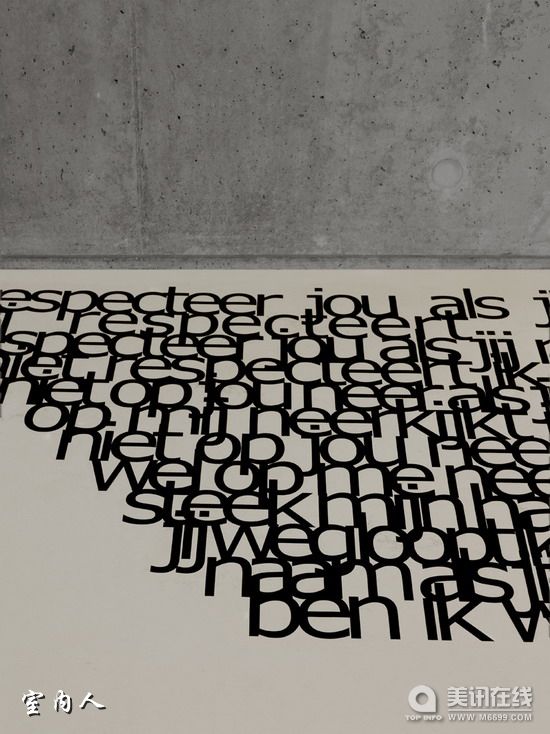 especteer jou als j
respecteert
specteer jou als jij n
niet respecteert ik
niet op jou neer als
op mij neerkijkt
niet op jou nee
wel op me nee
steek mijn ha
jij wegloopt ik
naam als jij
ben ik w
室内人
美讯在线
TOP INFO WWW.M6699.COM